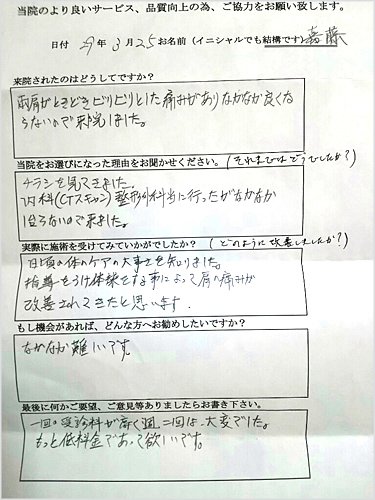 当院のより良いサービス、品質向上の為、ご協力をお願い致します。
日付 29年3月25 お名前(イニシャルでも結構です) 嘉藤
来院されたのはどうしてですか?
両肩がときどきビリビリとした痛みがありなかなか良くな
らないので来院しました。
当院をお選びになった理由をお聞かせください。(それまではどうでしたか?)
チラシを見てきました。
内科(CTスキャン)整形外科等に行ったがなかなか
治らないので来ました。
実際に施術を受けてみていかがでしたか?(どのように改善しましたか?)
日頃の体のケアの大事さを知りました。
指導をうけ体操をする事によって肩の痛みが
改善されてきたと思います.
もし機会があれば、どんな方へお勧めしたいですか?
なかなか難しいです。
最後に何かご要望、ご意見等ありましたらお書き下さい。
一回の受診料が高く週二回は大変でした。
もっと低料金であって欲しいです。